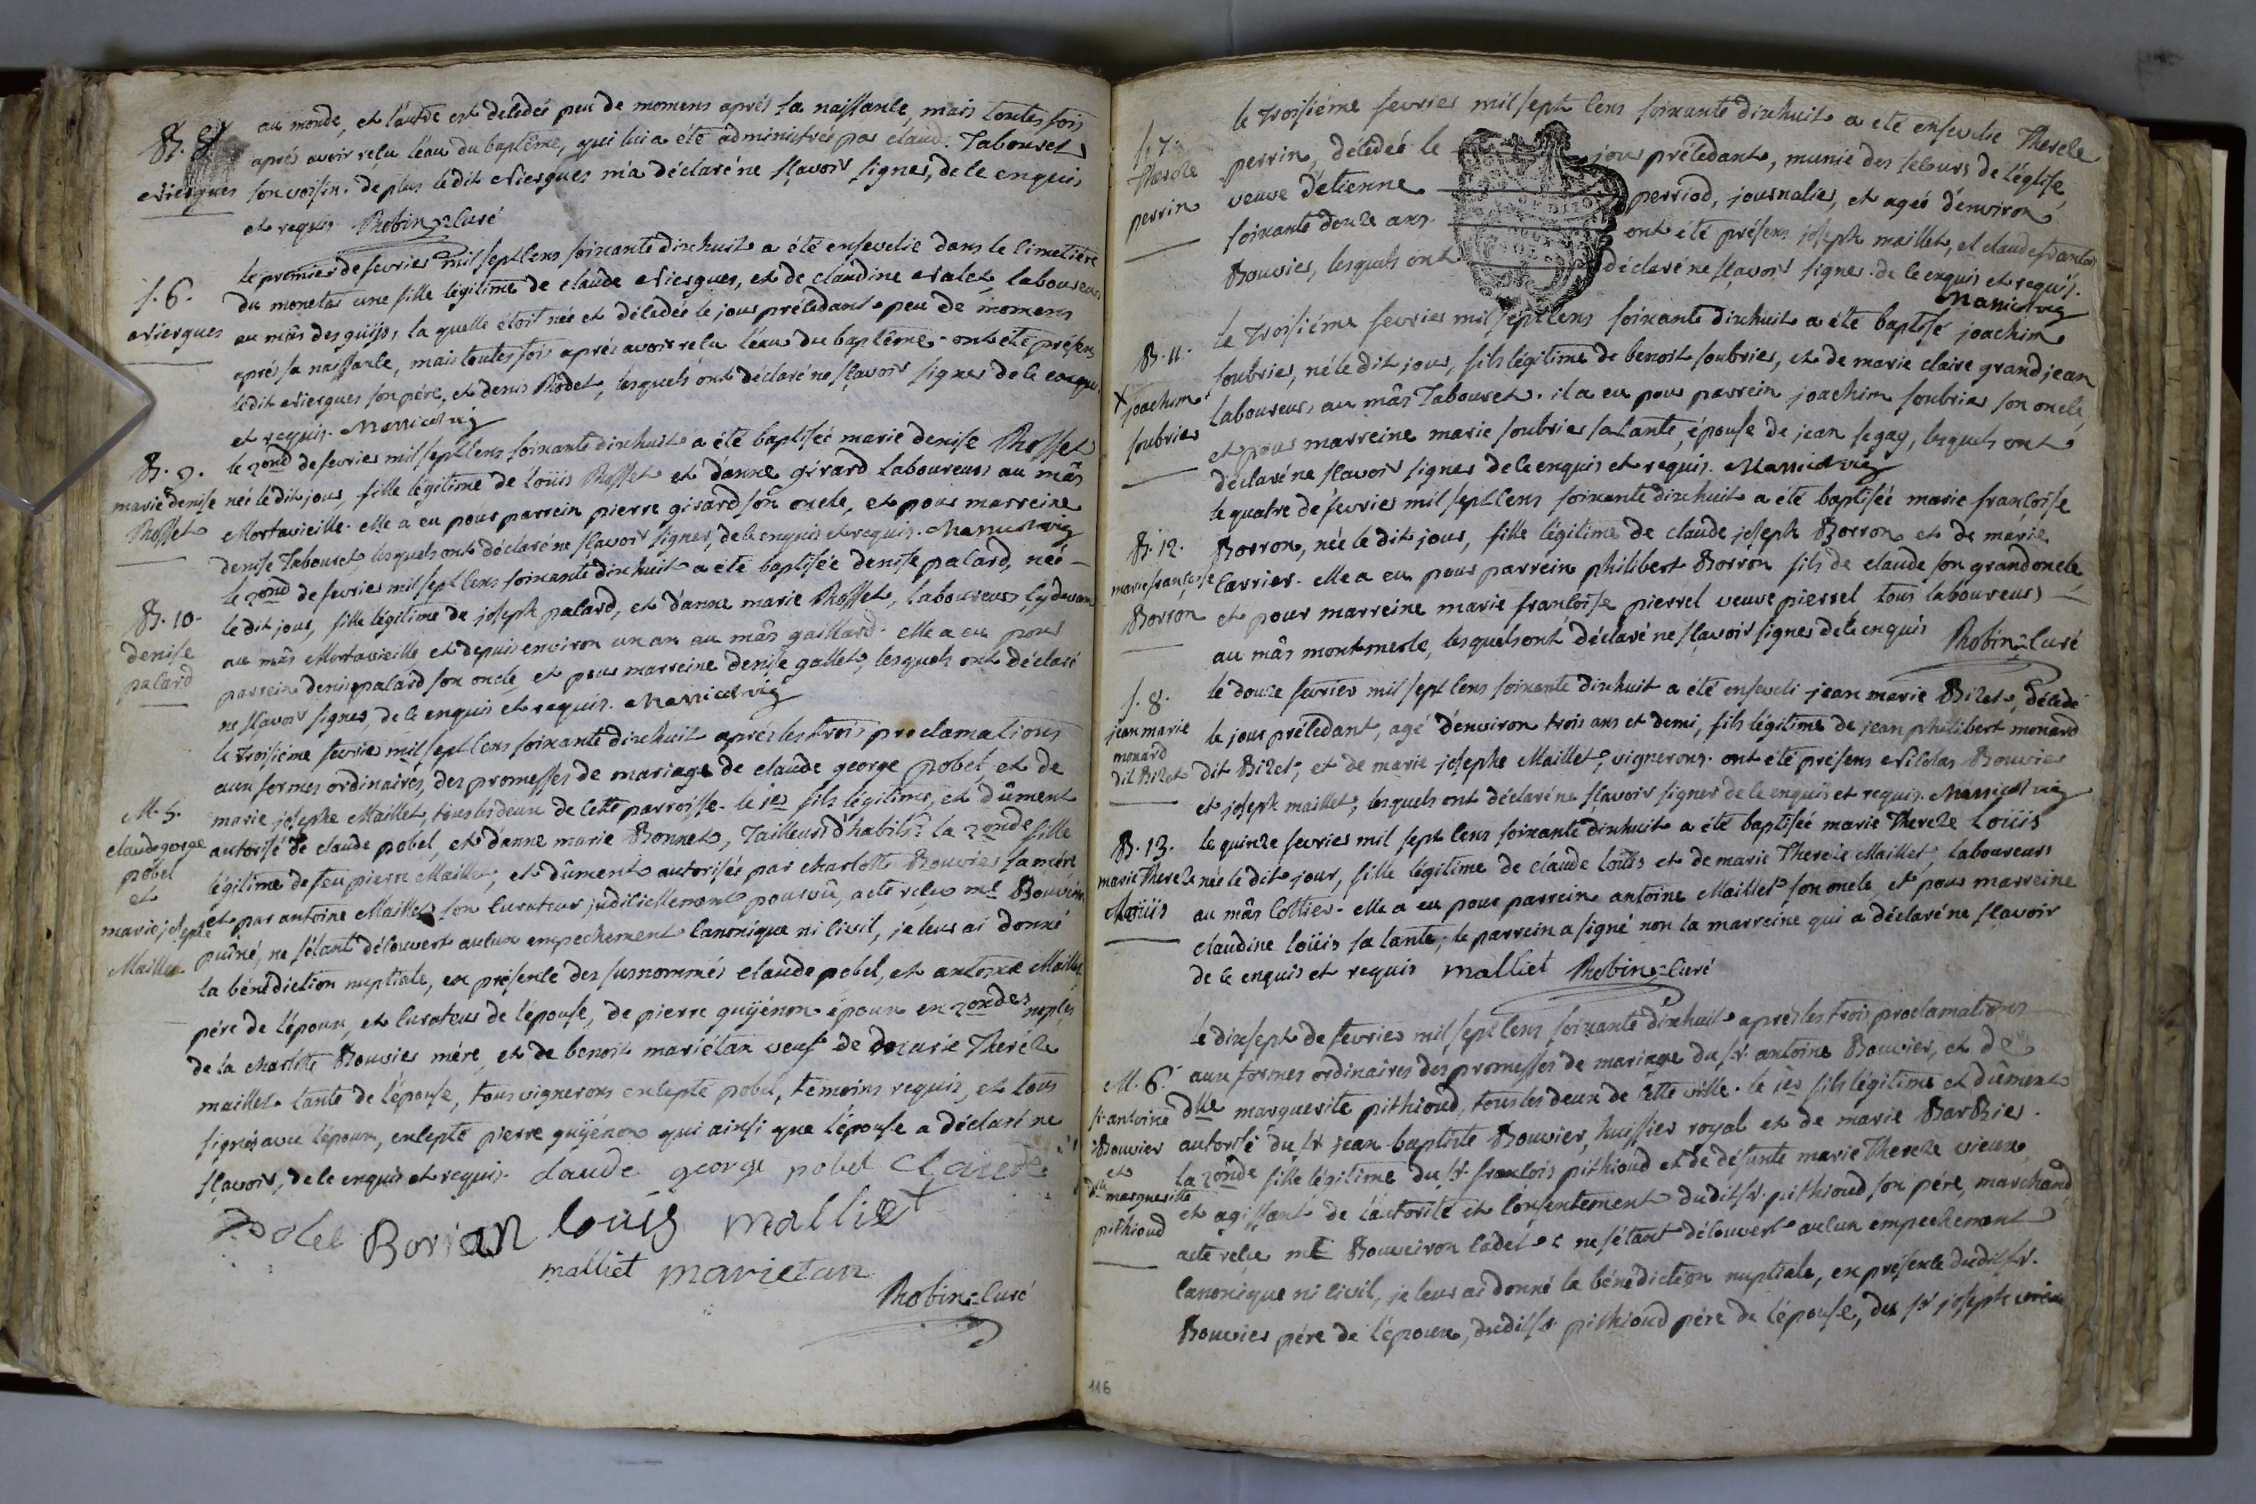 B. 8.
Niergues
au monde, et l'autre est décédée peu de momens après sa naissance, mais toutes fois
après avoir reçu l'eau du baptême, qui lui a été administrée par claud. Tabouret
son voisin. de plus le dit Niergues m'a déclaré ne sçavoir signer, de ce enquis
et requis. Robin curé
S. 6.
Niergues
le premier de fevrier mil sept cens soixante dix huit a été ensevelie dans le cimetière
du monetas une fille légitime de claude Niergues, et de claudine Valet, laboureurs
au mâs des guijss, la quelle étoit née et décédée le jour précédant peu de momens
après sa naissance, mais toutes fois après avoir reçu l'eau du baptême. ont été présens
le dit Niergues son père, et denis Rodet, lesquels ont déclaré ne sçavoir signer de ce enquis
et requis. Massicot vic
B. 9.
marie denise
Rosset
le 2ond de fevrier mil sept cens soixante dix huit a été baptisée marie denise Rosset
née le dit jour, fille légitime de loüis Rosset et d'anne girard laboureurs au mâs
Mortavieille. elle a eu pour parrein pierre girard son oncle, et pour marreine
denise Tabouret lesquels ont déclaré ne sçavoir signer, de ce enquis et requis. Massicot vic
B. 10.
denise
palard
le 2ond de fevrier mil sept cens soixante dix huit a été baptisée denise palard, née
le dit jour, fille légitime de joseph palard, et d'anne marie Rosset, laboureurs cy devant
au mâs Mortavieille et depuis environ un an au mâs gaillard. elle a eu pour
parrein denis palard son oncle, et pour marreine denise gallet, lesquels ont déclaré
ne sçavoir signer de ce enquis et requis. Massicot vic
M. 5.
claude george
pobel
et
marie josephe
Maillet
le troisiéme fevrier mil sept cens soixante dix huit après les trois proclamations
aux formes ordinaires, des promesses de mariage de claude george pobel, et de
marie josephe Maillet, tous les deux de cette parroisse. le 1er fils légitime, et dûment
autorisé de claude pobel, et d'anne marie Bonnet, Tailleurs d'habits. la 2onde fille
légitime de feu pierre Maillet, et dûment autorisée par charlotte Bouvier sa mére
et par antoine Maillet son curateur judiciellement pourvû, acte reçu me Bouveiron
puîné, ne s'étant découvert aucun empechement canonique ni civil, je leur ai donné
la bénédiction nuptiale, en présence des susnommés claude pobel, et antoine Maillet
pére de l'époux, et curateur de l'épouse, de pierre guyénon époux en 2ondes nopces
de la charlotte Bouvier mére, et de benoit mariétan veuf de marie Theréze
maillet tante de l'épouse, tous vignerons excepté pobel, témoins requis, et tous
signés avec l'époux, excepté pierre guyénon qui ainsi que l'épouse a déclaré ne
sçavoir, de ce enquis et requis. claude george pobel Claude
Pobel Borjan louis malliet
malliet marietan
Robin curé
S. 7.
Therese
perrin
le troisiéme fevrier mil sept cens soixante dix huit a été ensevelie Therese
perrin, décédée le jour précédant, munie des secours de l'église,
veuve d'étienne perriod, journalier, et agée d'environ
soixante douze ans. ont été présens joseph maillet, et claude françois
Bouvier, lesquels ont déclaré ne sçavoir signer. de ce enquis et requis.
Massicot vic
B. 11.
joachim
soubrier
le troisiéme fevrier mil sept cens soixante dix huit a été baptisé joachim
soubrier, né le dit jour, fils légitime de benoit soubrier, et de marie claire grandjean
laboureurs au mâs Tabouret. il a eu pour parrein joachim soubrier son oncle,
et pour marreine marie soubrier sa tante, épouse de jean segay, lesquels ont
déclaré ne sçavoir signer de ce enquis et requis. Massicot vic
B. 12.
marie françoise
Borron
le quatre de fevrier mil sept cens soixante dix huit a été baptisée marie françoise
Borron, née le dit jour, fille légitime de claude joseph Borron et de marie
Carrier. elle a eu pour parrein philibert Borron fils de claude son grand oncle
et pour marreine marie françoise pierrel veuve pierrel tous laboureurs
au mâs montmerle, lesquels ont déclaré ne sçavoir signer de ce enquis Robin curé
S. 8.
jean marie
monard
dit Bizet
le douze fevrier mil sept cens soixante dix huit a été enseveli jean marie Bizet, décédé
le jour précédant, agé d'environ trois ans et demi, fils légitime de jean philibert monard
dit Bizet, et de marie josephe Maillet, vignerons. ont été présens Nicolas Bouvier
et joseph maillet, lesquels ont déclaré ne sçavoir signer de ce enquis et requis. Massicot vic
B. 13.
marie Thereze
Loüis
le quinze fevrier mil sept cens soixante dix huit a été baptisée marie Thereze Loüis
née le dit jour, fille légitime de claude loüis et de marie Thereze Maillet, laboureurs
au mâs Cottier. elle a eu pour parrein antoine Maillet son oncle et pour marreine
claudine loüis sa tante, le parrein a signé non la marreine qui a déclaré ne sçavoir
de ce enquis et requis malliet Robin curé
M. 6.
sr. antoine
Bouvier
et
dlle marguerite
pithioud
le dix sept de fevrier mil sept cens soixante dix huit après les trois proclamations
aux formes ordinaires des promesses de mariage du sr. antoine Bouvier, et de
dlle marguerite pithioud, tous les deux de cette ville. le 1er fils légitime et dûment
autorisé du sr jean baptiste Bouvier, huissier royal et de marie BarBier.
la 2onde fille légitime du sr. françois pithioud et de défunte marie Thereze vieux
et agissant de l'autorité et consentement dudit sr. pithioud son pére, marchand,
acte reçu me Bouveiron cadet, ne s'étant découvert aucun empechement
canonique ni civil, je leur ai donné la bénédiction nuptiale, en présence dudit sr.
Bouvier pére de l'époux, dudit sr. pithioud pére de l'épouse, du sr joseph vieux
116